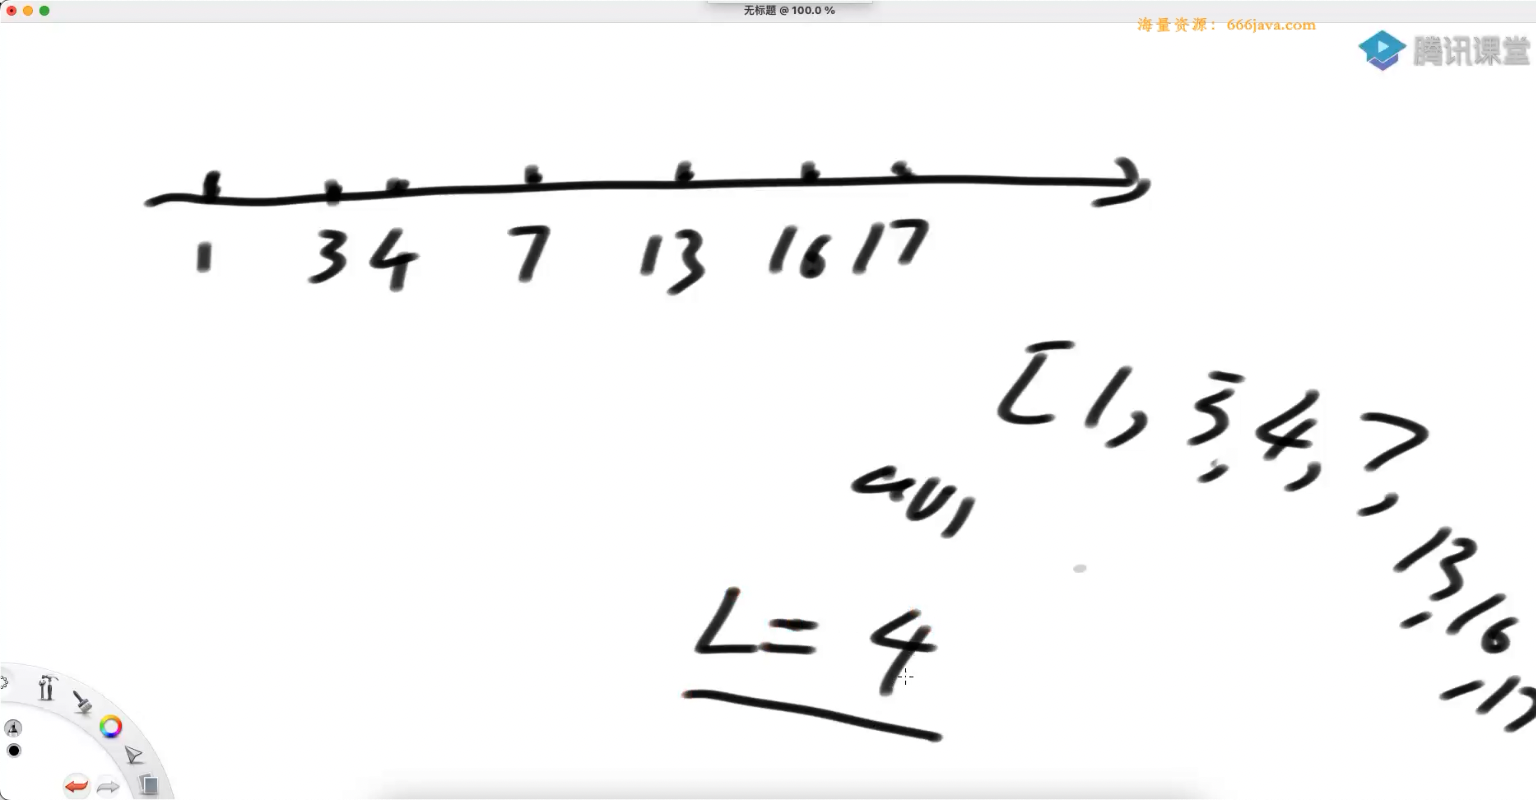 无标题 @ 100.0 %
海量资源：666java.com
腾讯课堂
1 3 4 7 13 16 17
[1, 3, 4, 7,
arr
13, 16
, 17
L = 4